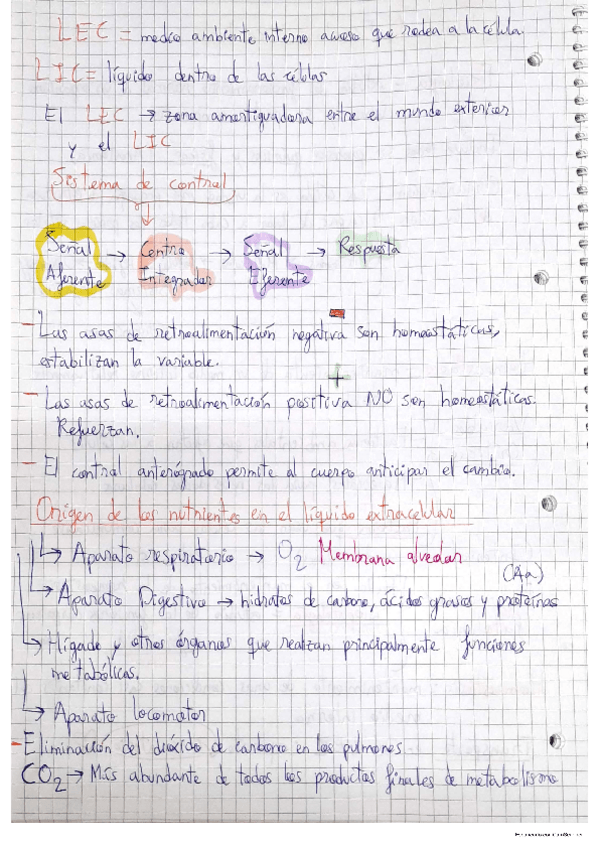 LEC = medio ambiente interno acuoso que rodea a la célula.
LIC = líquido dentro de las células
El LEC → zona amortiguadora entre el mundo exterior
y el LIC
Sistema de control
Señal Aferente → Centro Integrador → Señal Eferente → Respuesta
-
- Las asas de retroalimentación negativa son homeostáticas,
estabilizan la variable.
+
- Las asas de retroalimentación positiva NO son homeostáticas.
Refuerzan.
- El control anterógrado permite al cuerpo anticipar el cambio.
Origen de los nutrientes en el líquido extracelular
↳ Aparato respiratorio → O2 Membrana alveolar
(Aa)
↳ Aparato Digestivo → hidratos de carbono, ácidos grasos y proteínas
↳ Hígado y otros órganos que realizan principalmente funciones
metabólicas.
↳ Aparato locomotor
- Eliminación del dióxido de carbono en los pulmones.
CO2 → Más abundante de todos los productos finales de metabolismo